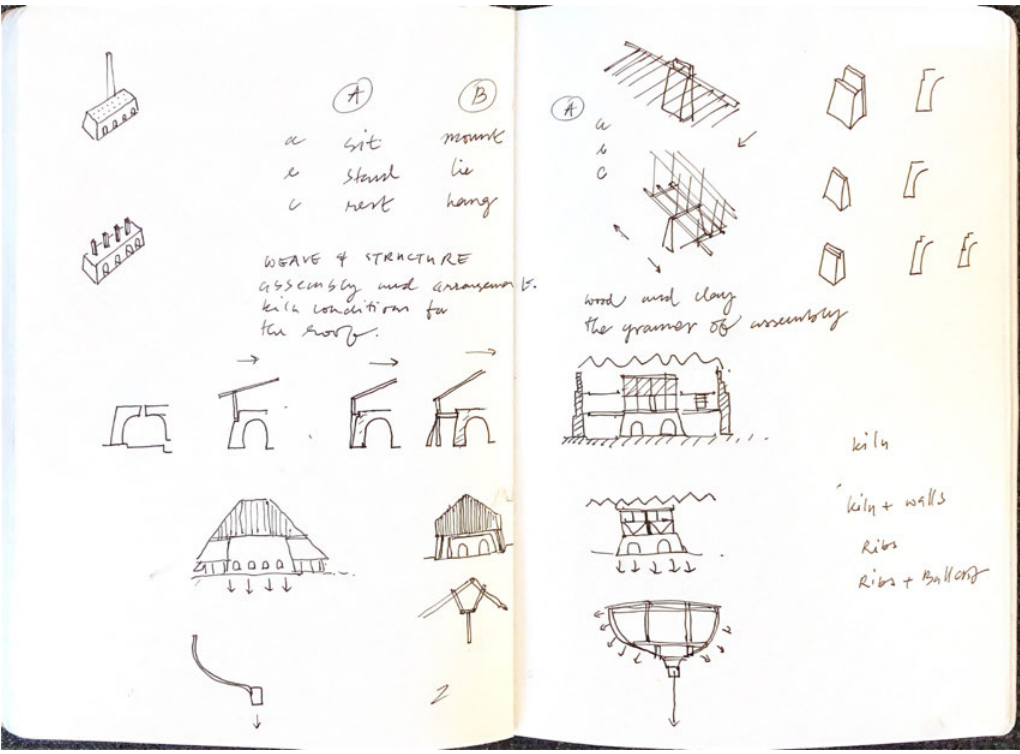 A B
a sit mount
e stand lie
c rest hang
WEAVE & STRUCTURE
assembly and arrangement.
kiln conditions for
the roof.
2
A
a
b
c
wood and clay
the grammer of assembly
kiln
kiln + walls
Ribs
Ribs + Ballast